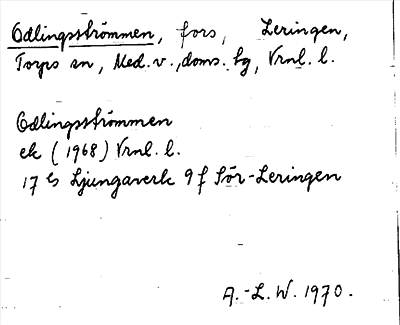 Edlingsströmmen, fors, Leringen,
Torps sn, Med. v., doms. hg, Vrnl. l.
Edlingsströmmen
ek (1968) Vrnl. l.
17 G Ljungaverk 9 f Sör-Leringen
A.-L. W. 1970.